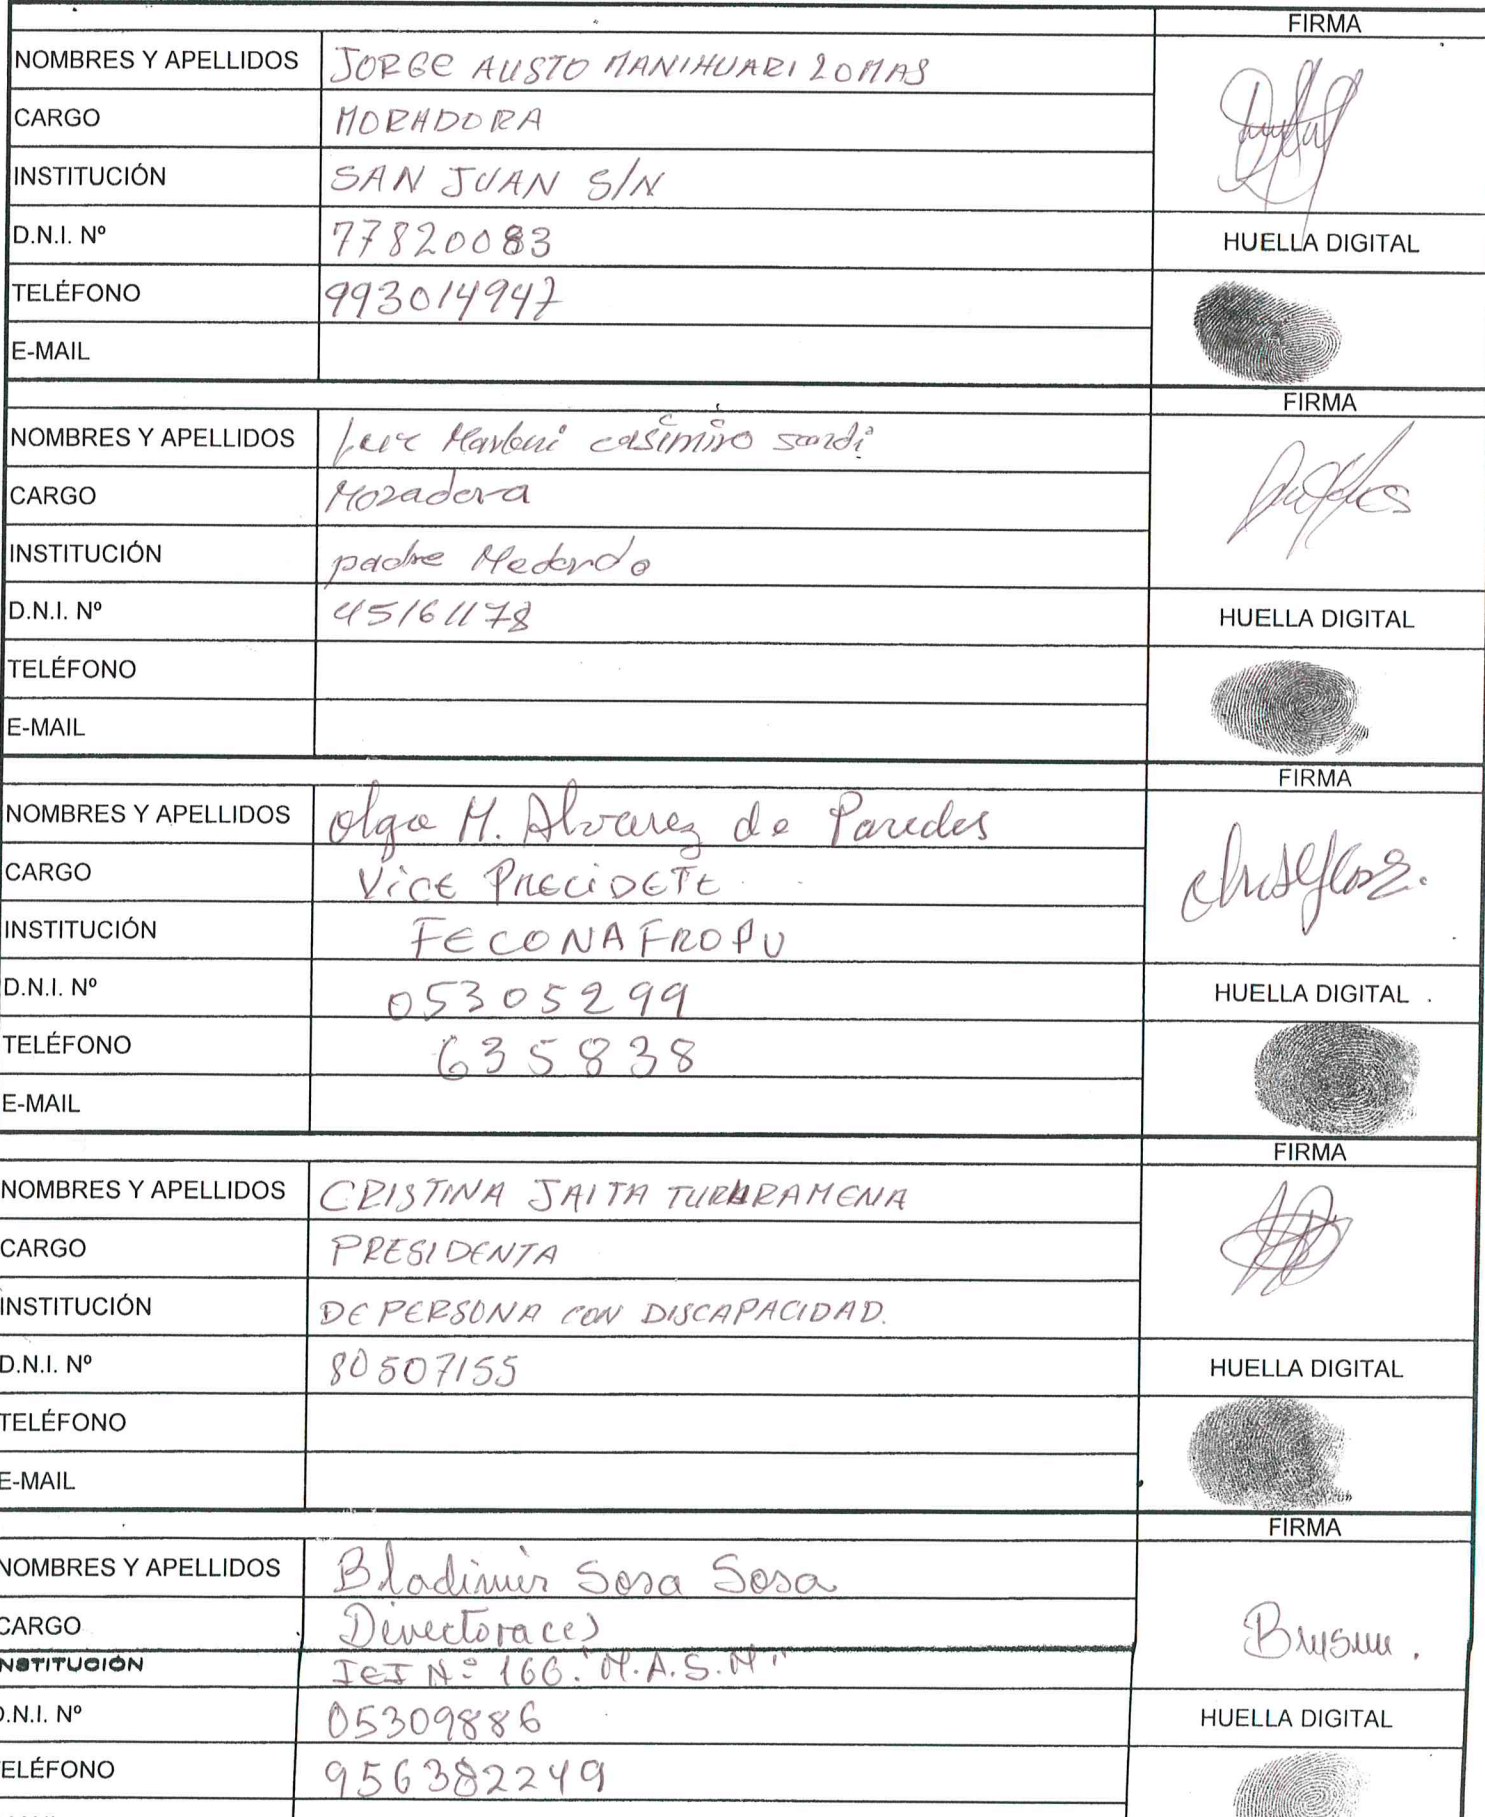 FIRMA
NOMBRES Y APELLIDOS JORGE AUSTO MANIHUARI LOMAS
CARGO MORADORA
INSTITUCIÓN SAN JUAN S/N
D.N.I. Nº 77820083
HUELLA DIGITAL
TELÉFONO 993014947
E-MAIL
FIRMA
NOMBRES Y APELLIDOS casimiro sandi
CARGO Moradora
INSTITUCIÓN padre Medardo
D.N.I. Nº 45161178
HUELLA DIGITAL
TELÉFONO
E-MAIL
FIRMA
NOMBRES Y APELLIDOS Olga M. Alvarez de Paredes
CARGO VICE PRECIDETE
INSTITUCIÓN FECONAFROPU
D.N.I. Nº 05305299
HUELLA DIGITAL
TELÉFONO 635838
E-MAIL
FIRMA
NOMBRES Y APELLIDOS CRISTINA JAITA
CARGO PRESIDENTA
INSTITUCIÓN DE PERSONA CON DISCAPACIDAD.
D.N.I. Nº 80507155
HUELLA DIGITAL
TELÉFONO
E-MAIL
FIRMA
NOMBRES Y APELLIDOS Bladimir Sosa Sosa
CARGO Directora(e)
INSTITUCIÓN IEI Nº 166. "M.A.S.M"
D.N.I. Nº 05309886
HUELLA DIGITAL
TELÉFONO 956382249